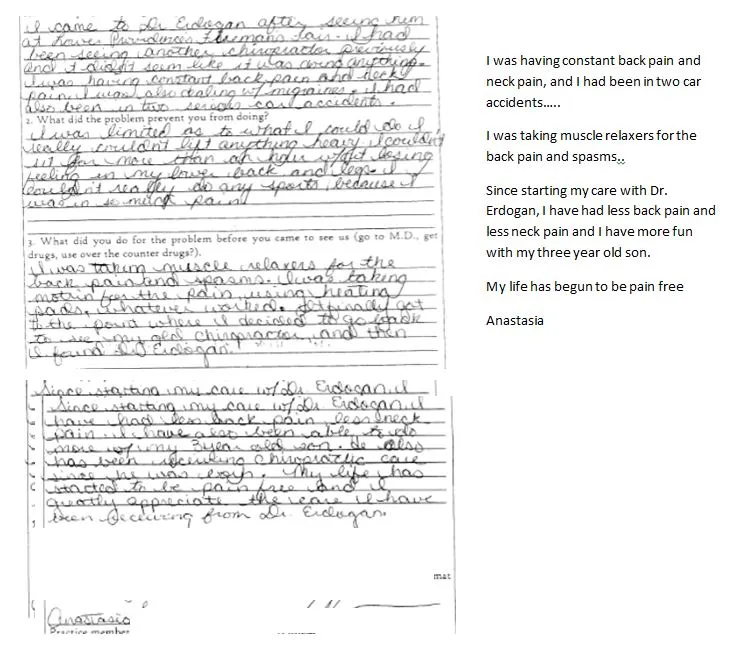 I came to Dr Erdogan after seeing him
at Lower Providences Firemans Fair. I had
been seeing another chiropractor previously
and it didn't seem like it was doing anything.
I was having constant back pain and neck
pain. I was also dealing w/ migraines. I had
also been in two serious car accidents.
2. What did the problem prevent you from doing?
I was limited as to what I could do I
really couldn't lift anything heavy, I couldn't
sit for more than an hour w/out losing
feeling in my lower back and legs. I
couldn't really do any sports, because I
was in so much pain
3. What did you do for the problem before you came to see us (go to M.D., get
drugs, use over the counter drugs?).
I was taking muscle relaxers for the
back pain and spasms. I was taking
motrin for the pain, using heating
pads, whatever worked. I finally got
to the point where I decided to go back
to see my old chiropractor, and then
I found Dr Erdogan!
Since starting my care w/ Dr Erdogan, I
Since starting my care w/ Dr Erdogan, I
have had less back pain, less neck
pain. I have also been able to do
more w/ my 3 year old son. He also
has been receiving chiropractic care
since he was born. My life has
started to be pain free and I
greatly appreciate the care I have
been receiving from Dr. Erdogan.
mat
Anastasia
Practice member
I was having constant back pain and
neck pain, and I had been in two car
accidents.....
I was taking muscle relaxers for the
back pain and spasms..
Since starting my care with Dr.
Erdogan, I have had less back pain and
less neck pain and I have more fun
with my three year old son.
My life has begun to be pain free
Anastasia